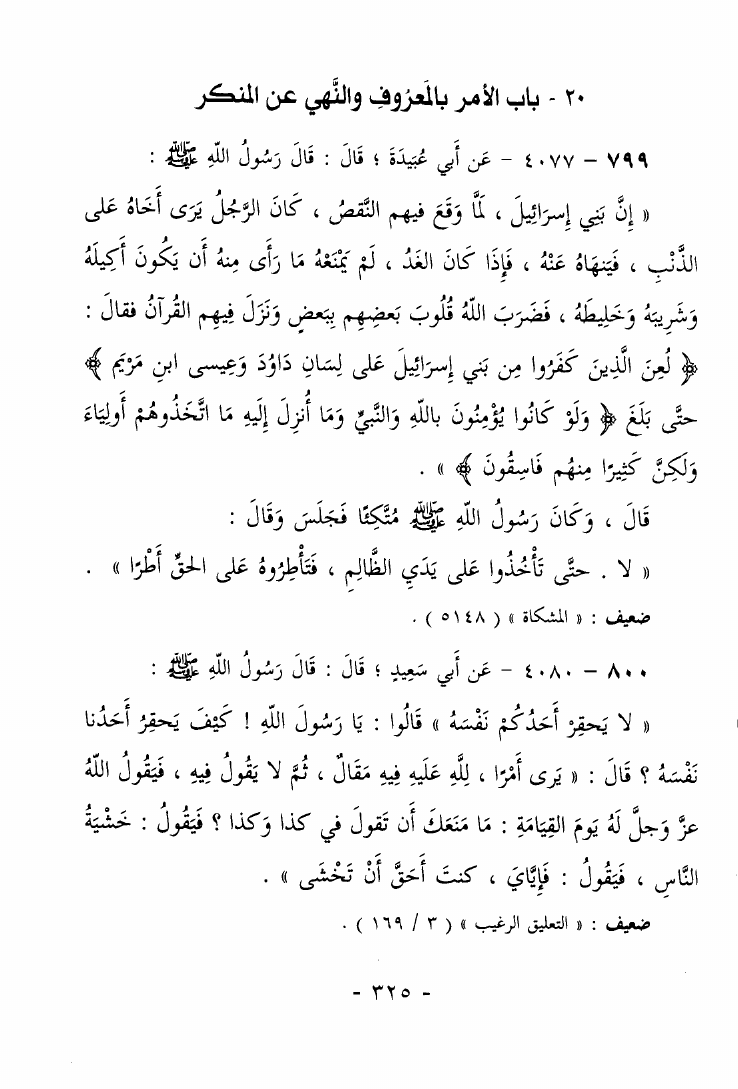 ٢٠ - باب الأمر بالمَعرُوفِ والنَّهي عن المنكر
٧٩٩ – ٤٠٧٧ – عَن أَبي عُبَيدَةَ ؛ قَالَ : قَالَ رَسُولُ اللّهِ ﷺ :
« إِنَّ بَنِي إِسرَائِيلَ ، لَمَّا وَقَعَ فيهِم النَّقصُ ، كَانَ الرَّجُلُ يَرَى أَخَاهُ عَلى
الذَّنْبِ ، فَيَنهَاهُ عَنْهُ ، فَإِذَا كَانَ الغَدُ ، لَمْ يَمْنَعْهُ مَا رَأَى مِنهُ أَن يَكُونَ أَكِيلَهُ
وَشَرِيبَهُ وَخَلِيطَهُ ، فَضَرَبَ اللّهُ قُلُوبَ بَعضِهِم بِبَعضٍ وَنَزَلَ فِيهِم القُرآنُ فقالَ :
﴿ لُعِنَ الَّذِينَ كَفَرُوا مِن بَني إِسرَائِيلَ عَلى لِسَانِ دَاوُدَ وَعِيسى ابنِ مَرْيَم ﴾
حتَّى بَلَغَ ﴿ وَلَوْ كَانُوا يُؤْمِنُونَ باللّهِ وَالنَّبيِّ وَمَا أُنزِلَ إِلَيهِ مَا اتَّخَذُوهُمْ أَولِيَاءَ
وَلَكِنَّ كَثِيرًا مِنهُم فَاسِقُونَ ﴾ » .
قَالَ ، وَكَانَ رَسُولُ اللّهِ ﷺ مُتَّكِئًا فَجَلَسَ وَقَالَ :
« لا . حتَّى تَأْخُذُوا عَلى يَدَيِ الظَّالِمِ ، فَتَأْطِرُوهُ عَلى الحَقِّ أَطْرًا » .
ضعيف : « المشكاة » ( ٥١٤٨ ) .
٨٠٠ – ٤٠٨٠ – عَن أَبي سَعِيدٍ ؛ قَالَ : قَالَ رَسُولُ اللّهِ ﷺ :
« لا يَحقِرْ أَحَدُكُمْ نَفْسَهُ » قَالُوا : يَا رَسُولَ اللّهِ ! كَيْفَ يَحقِرُ أَحَدُنا
نَفْسَهُ ؟ قَالَ : « يَرى أَمْرًا ، لِلَّهِ عَلَيهِ فِيهِ مَقَالٌ ، ثُمَّ لا يَقُولُ فِيهِ ، فَيَقُولُ اللّهُ
عزَّ وَجلَّ لَهُ يَومَ القِيَامَةِ : مَا مَنَعَكَ أَن تَقولَ في كذا وَكذا ؟ فَيَقُولُ : خَشْيَةُ
النَّاسِ ، فَيَقُولُ : فَإِيَّايَ ، كنتَ أَحَقَّ أَنْ تَخْشَى » .
ضعيف : « التعليق الرغيب » ( ٣ / ١٦٩ ) .
- ٣٢٥ -